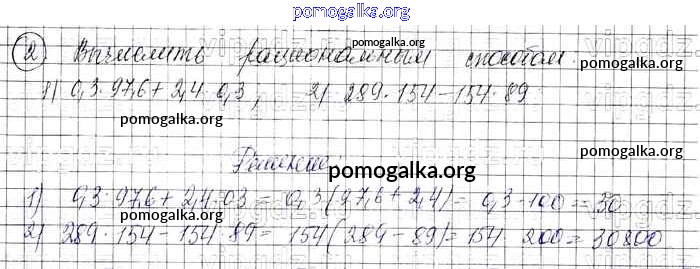 pomogalka.org
2 Вычислить рациональным способом. pomogalka.org
pomogalka.org
1) 0,3·97,6 + 2,4·0,3, 2) 289·154 - 154·89
pomogalka.org pomogalka.org
Решение
pomogalka.org
1) 0,3·97,6 + 2,4·03 = 0,3(97,6 + 2,4) = 0,3·100 = 30
pomogalka.org pomogalka.org
2) 289·154 - 154·89 = 154(289 - 89) = 154·200 = 30800
pomogalka.org